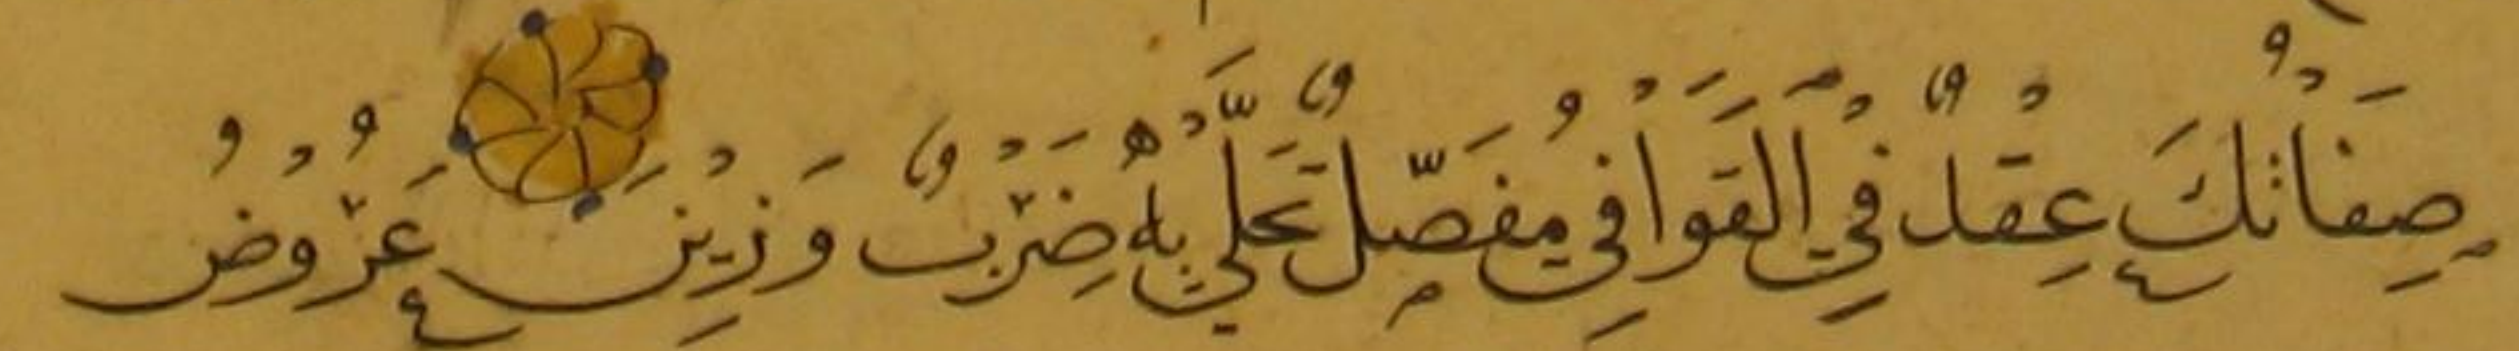 صِفَاتُكَ عِقْدٌ فِي الْقَوَافِي مُفَصَّلٌ تَحَلَّى بِهِ ضَرْبٌ وَزِينَ عَرُوضُ